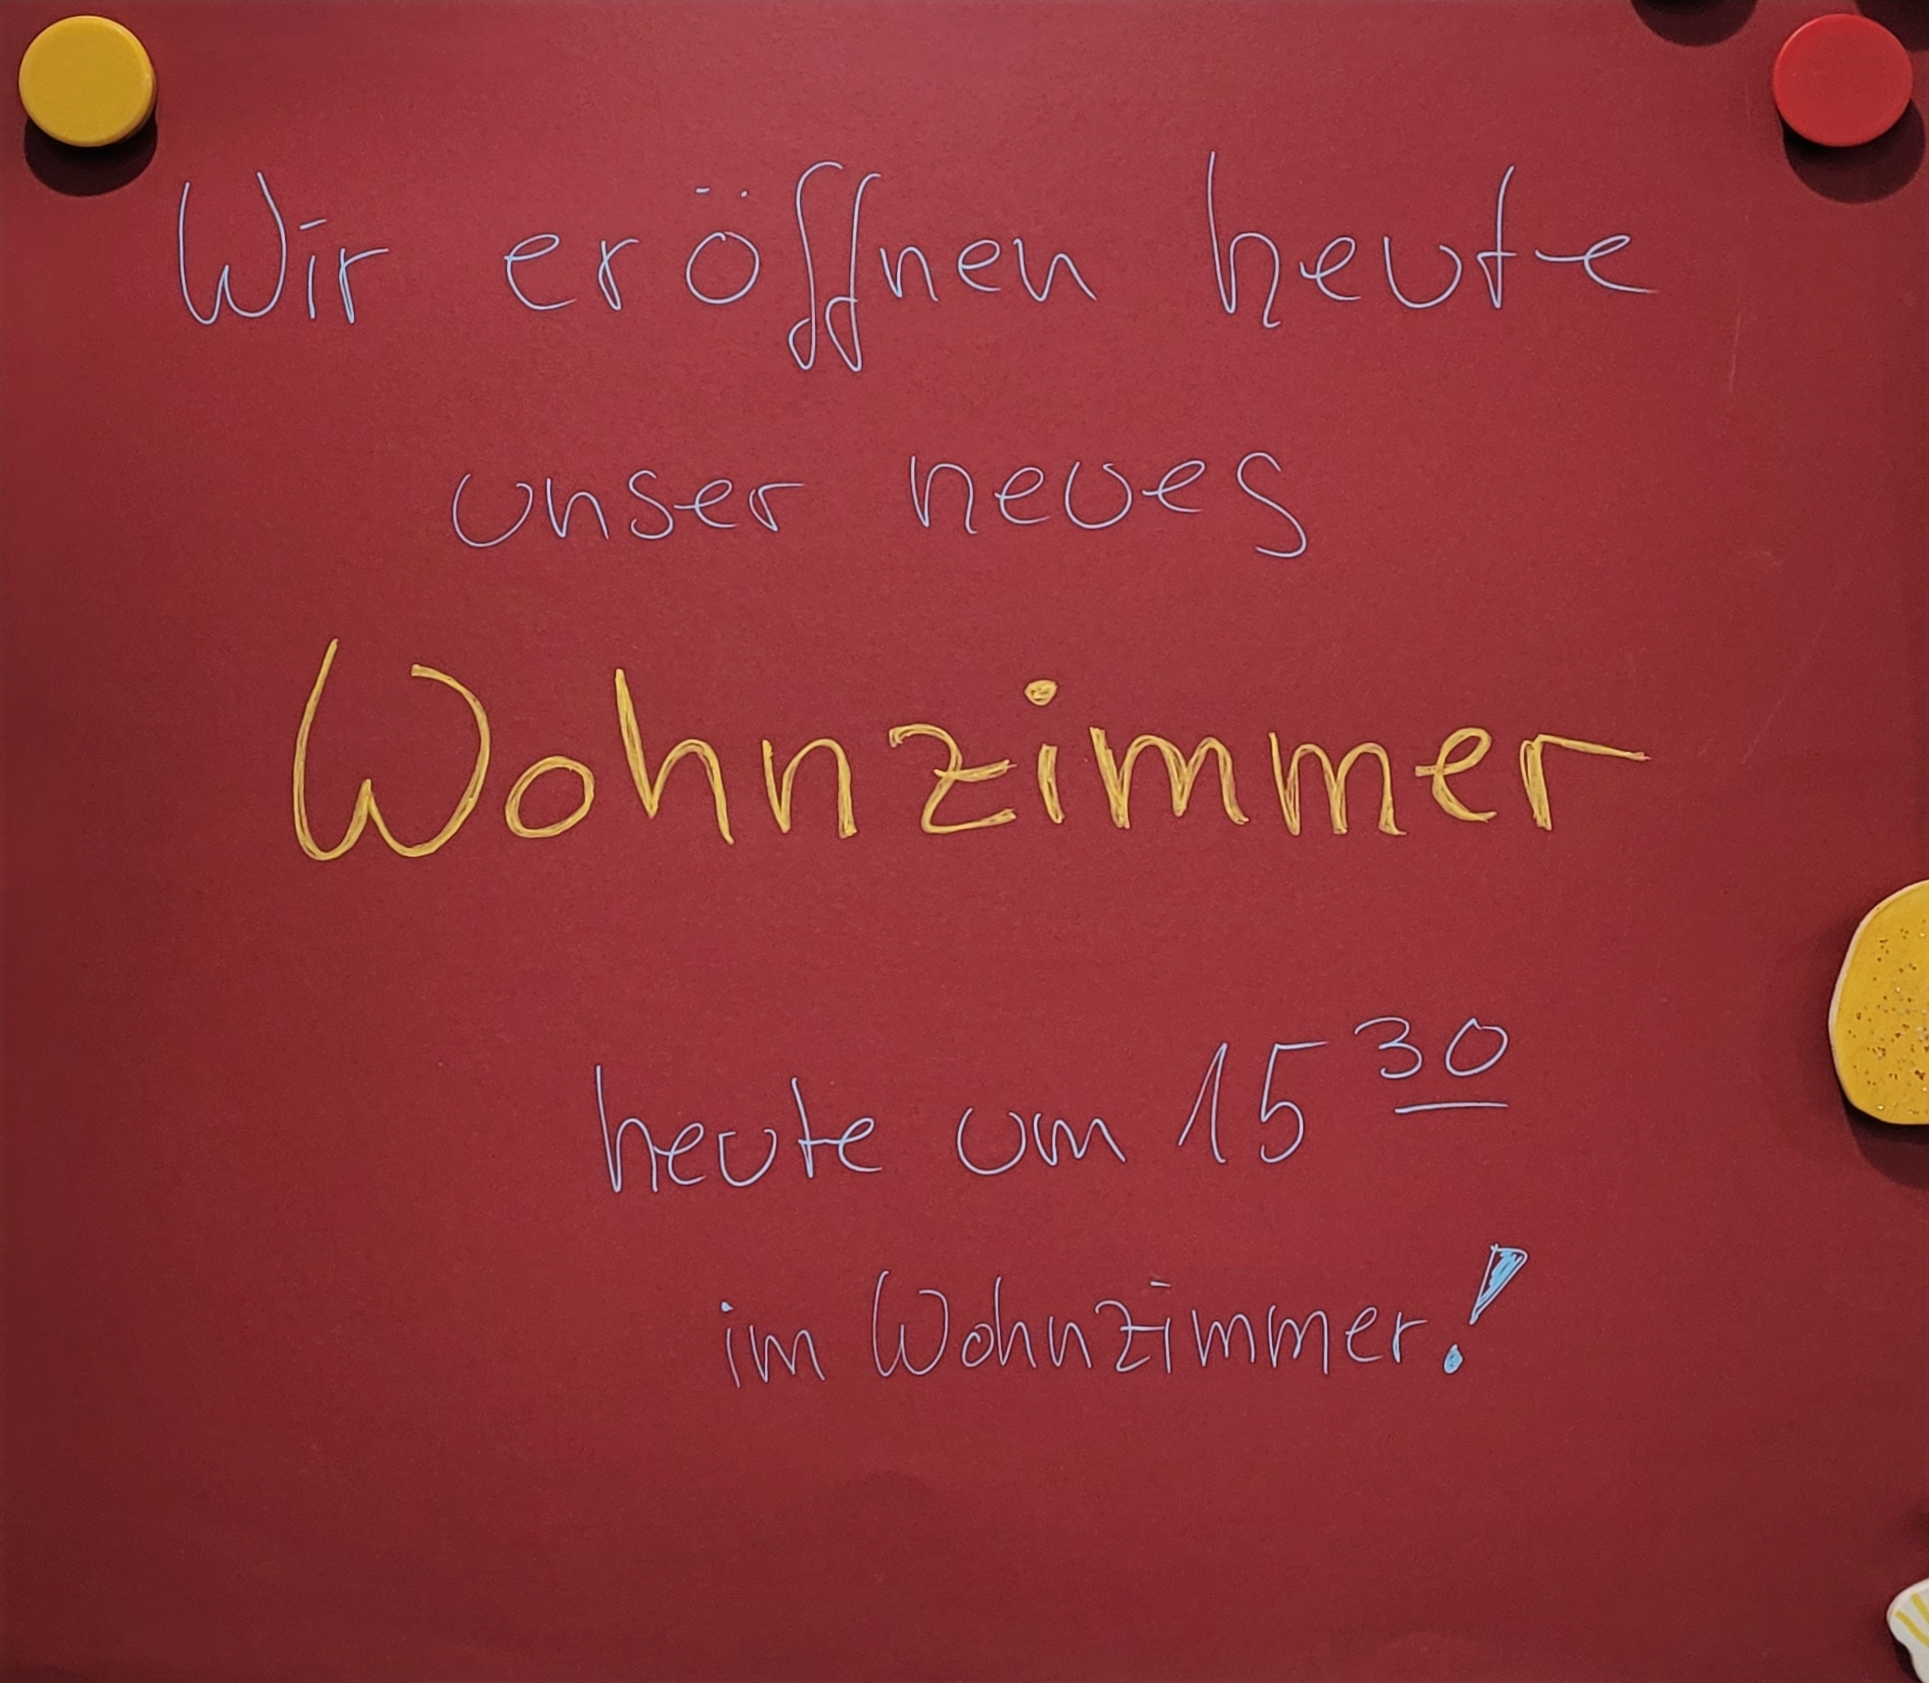 Wir eröffnen heute
unser neues
Wohnzimmer
heute um 15 30
im Wohnzimmer!